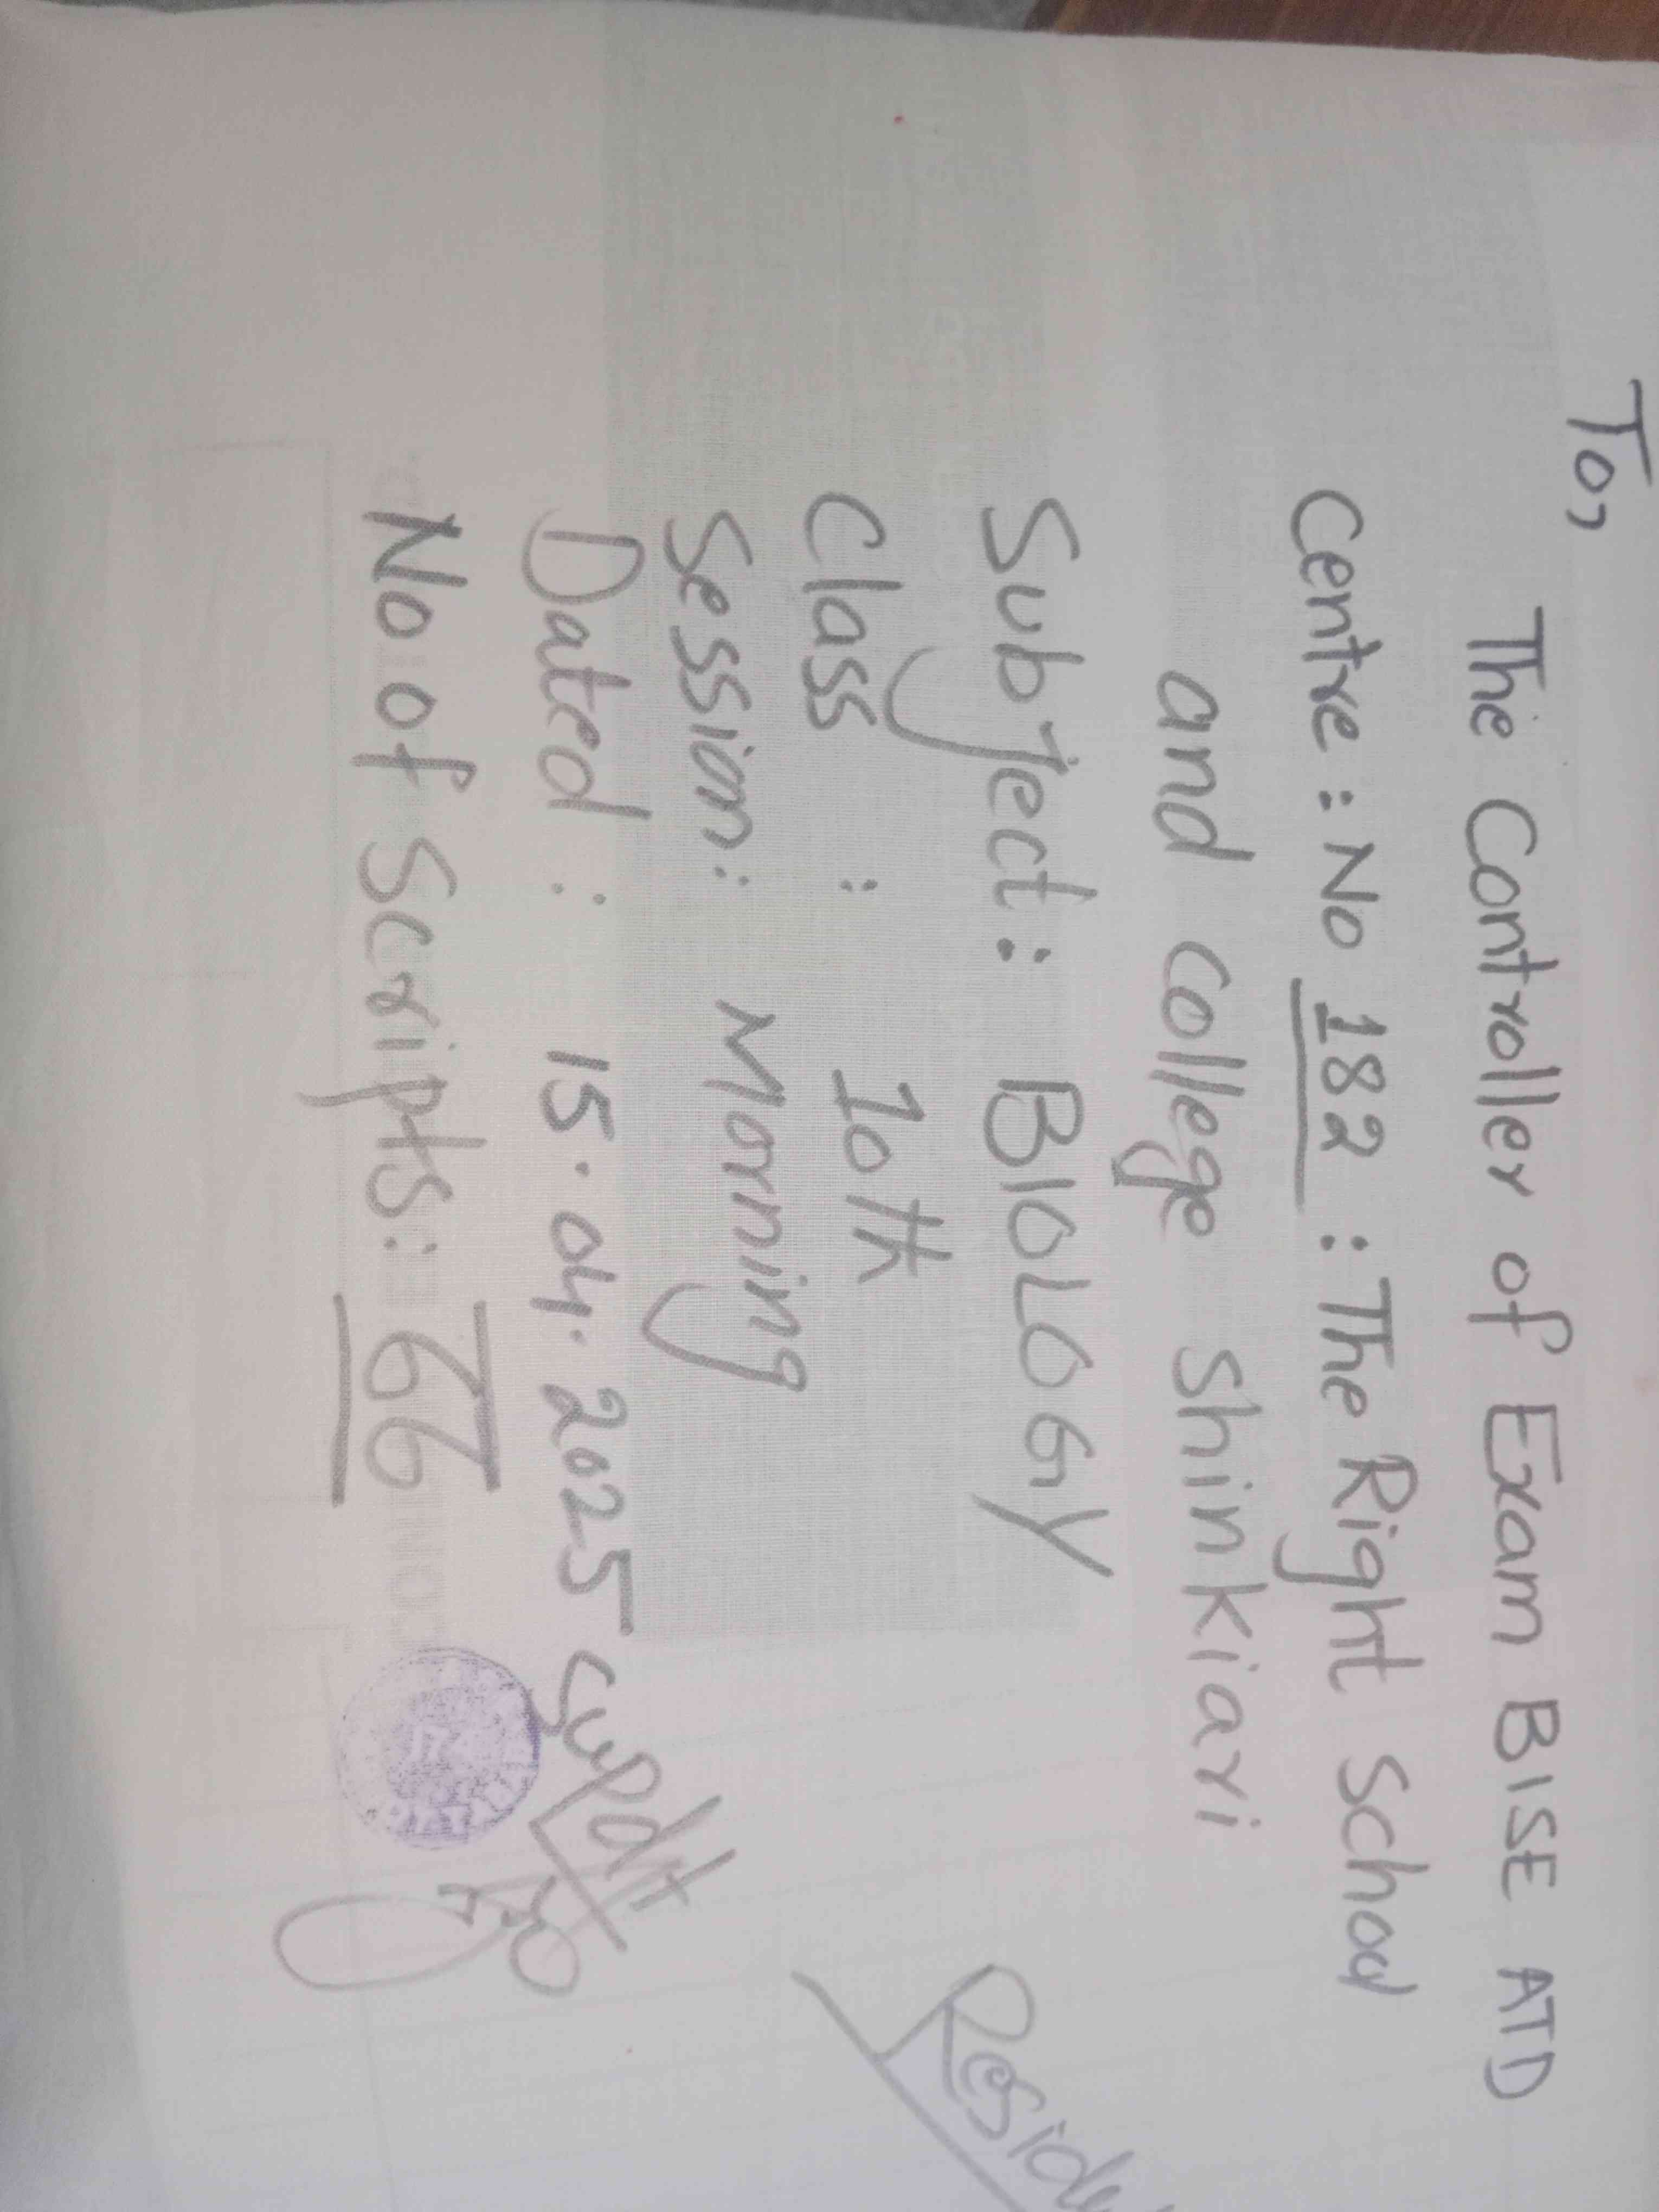 To,
The Controller of Exam BISE ATD
Centre : No 182 : The Right School
and college Shinkiari
Subject : BIOLOGY
Class : 10th
Session : Morning
Dated : 15.04.2025
No of Scripts : 66
Supdt